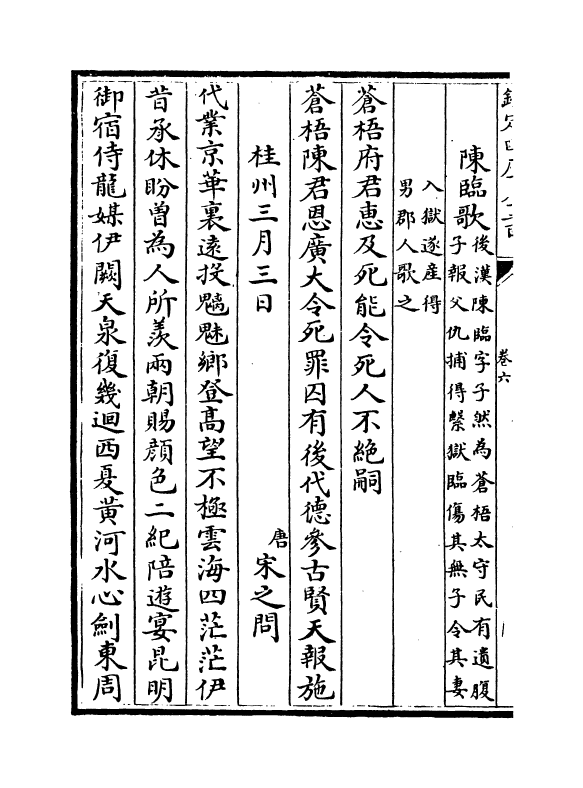 欽定四庫全書
卷六
陳臨歌
後漢陳臨字子然為蒼梧太守民有遺腹
子報父仇捕得繫獄臨傷其無子令其妻
入獄遂産得
男郡人歌之
蒼梧府君恵及死能令死人不絶嗣
蒼梧陳君恩廣大令死罪囚有後代德參古賢天報施
桂州三月三日 唐 宋之問
代業京華裏遠投魑魅鄉登髙望不極雲海四茫茫伊
昔承休盼曽為人所羨兩朝賜顔色二紀陪遊宴昆明
御宿侍龍媒伊闕天泉復幾迴西夏黄河水心劍東周